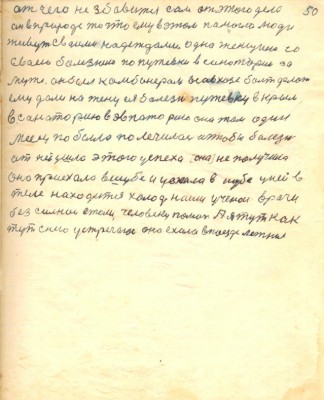 50
от чего не збавится сам от этого дело
он в природе то это ему в этом помогло люди
живут своими надеждами одна женщина со
своей болезнию по путевки в санаторию за
муж он был комбайнерам в совхозе
ему дали на жену ея болезн путевку в крым
в санаторию в эвпаторию она там один
месец по была по лечилас и чтобы болезн
от ней ушло этого успеха она не получила
она приехала в шубе и уехала в шубе у ней в
теле находится холод наши ученои врачи
без силнои етому человеку помоч А я тут как
тут с нею устречаюс она ехала в поезде